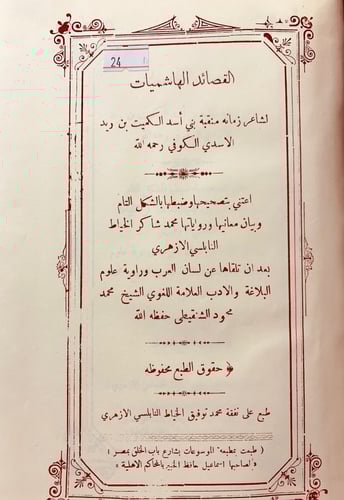 24
القصائد الهاشميات
لشاعر زمانه منقبة بني أسد الكميت بن زيد
الاسدي الكوفي رحمه الله
اعتنى بتصحيحها وضبطها بالشكل التام
وبيان معانيها ورواياتها محمد شاكر الخياط
النابلسي الازهري
بعد ان تلقاها عن لسان العرب وراوية علوم
البلاغة والادب العلامة اللغوي الشيخ محمد
محمود الشنقيطي حفظه الله
﴿ حقوق الطبع محفوظه
طبع على نفقة محمد توفيق الخياط النابلسي الازهري
( طبعت بمطبعة الموسوعات بشارع باب الخلق بمصر )
« لصاحبها اسماعيل حافظ الخبير بالمحاكم الاهلية »